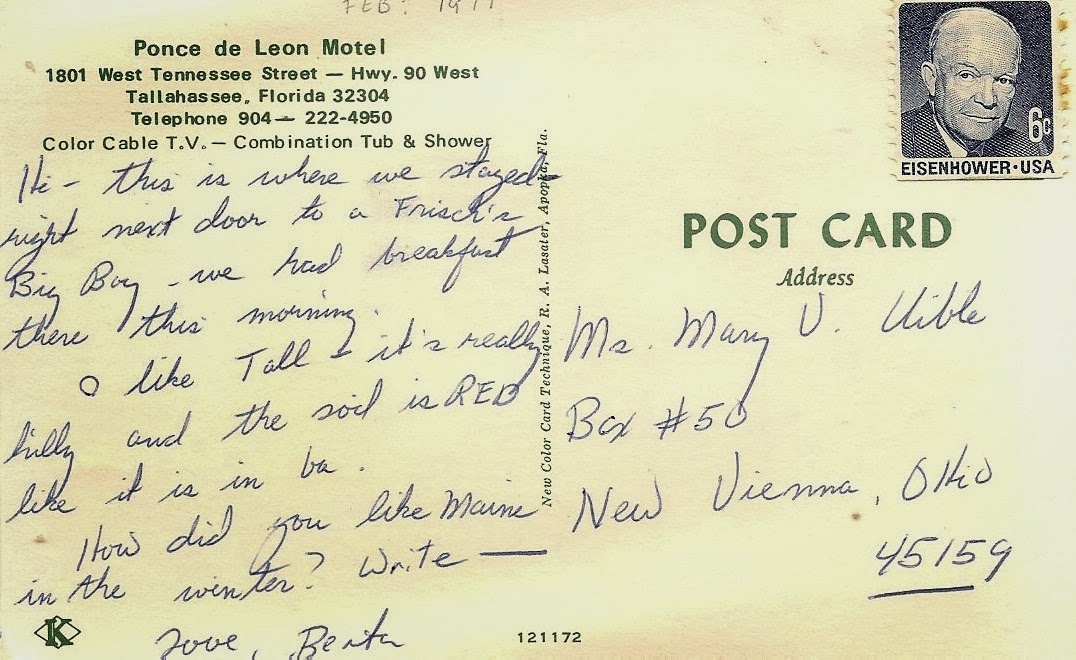 Ponce de Leon Motel
1801 West Tennessee Street — Hwy. 90 West
Tallahassee, Florida 32304
Telephone 904— 222-4950
Color Cable T.V.— Combination Tub & Shower
Hi - this is where we stayed -
right next door to a Frisch's
Big Boy - we had breakfast
there this morning.
I like Tall - it's really
hilly and the soil is RED
like it is in
How did you like Maine
in the winter? Write —
Love,
New Color Card Technique, R. A. Lasater, Apopka, Fla.
EISENHOWER·USA
6c
POST CARD
Address
Ms. Mary V.
Box #50
New Vienna, Ohio
45159
K
121172